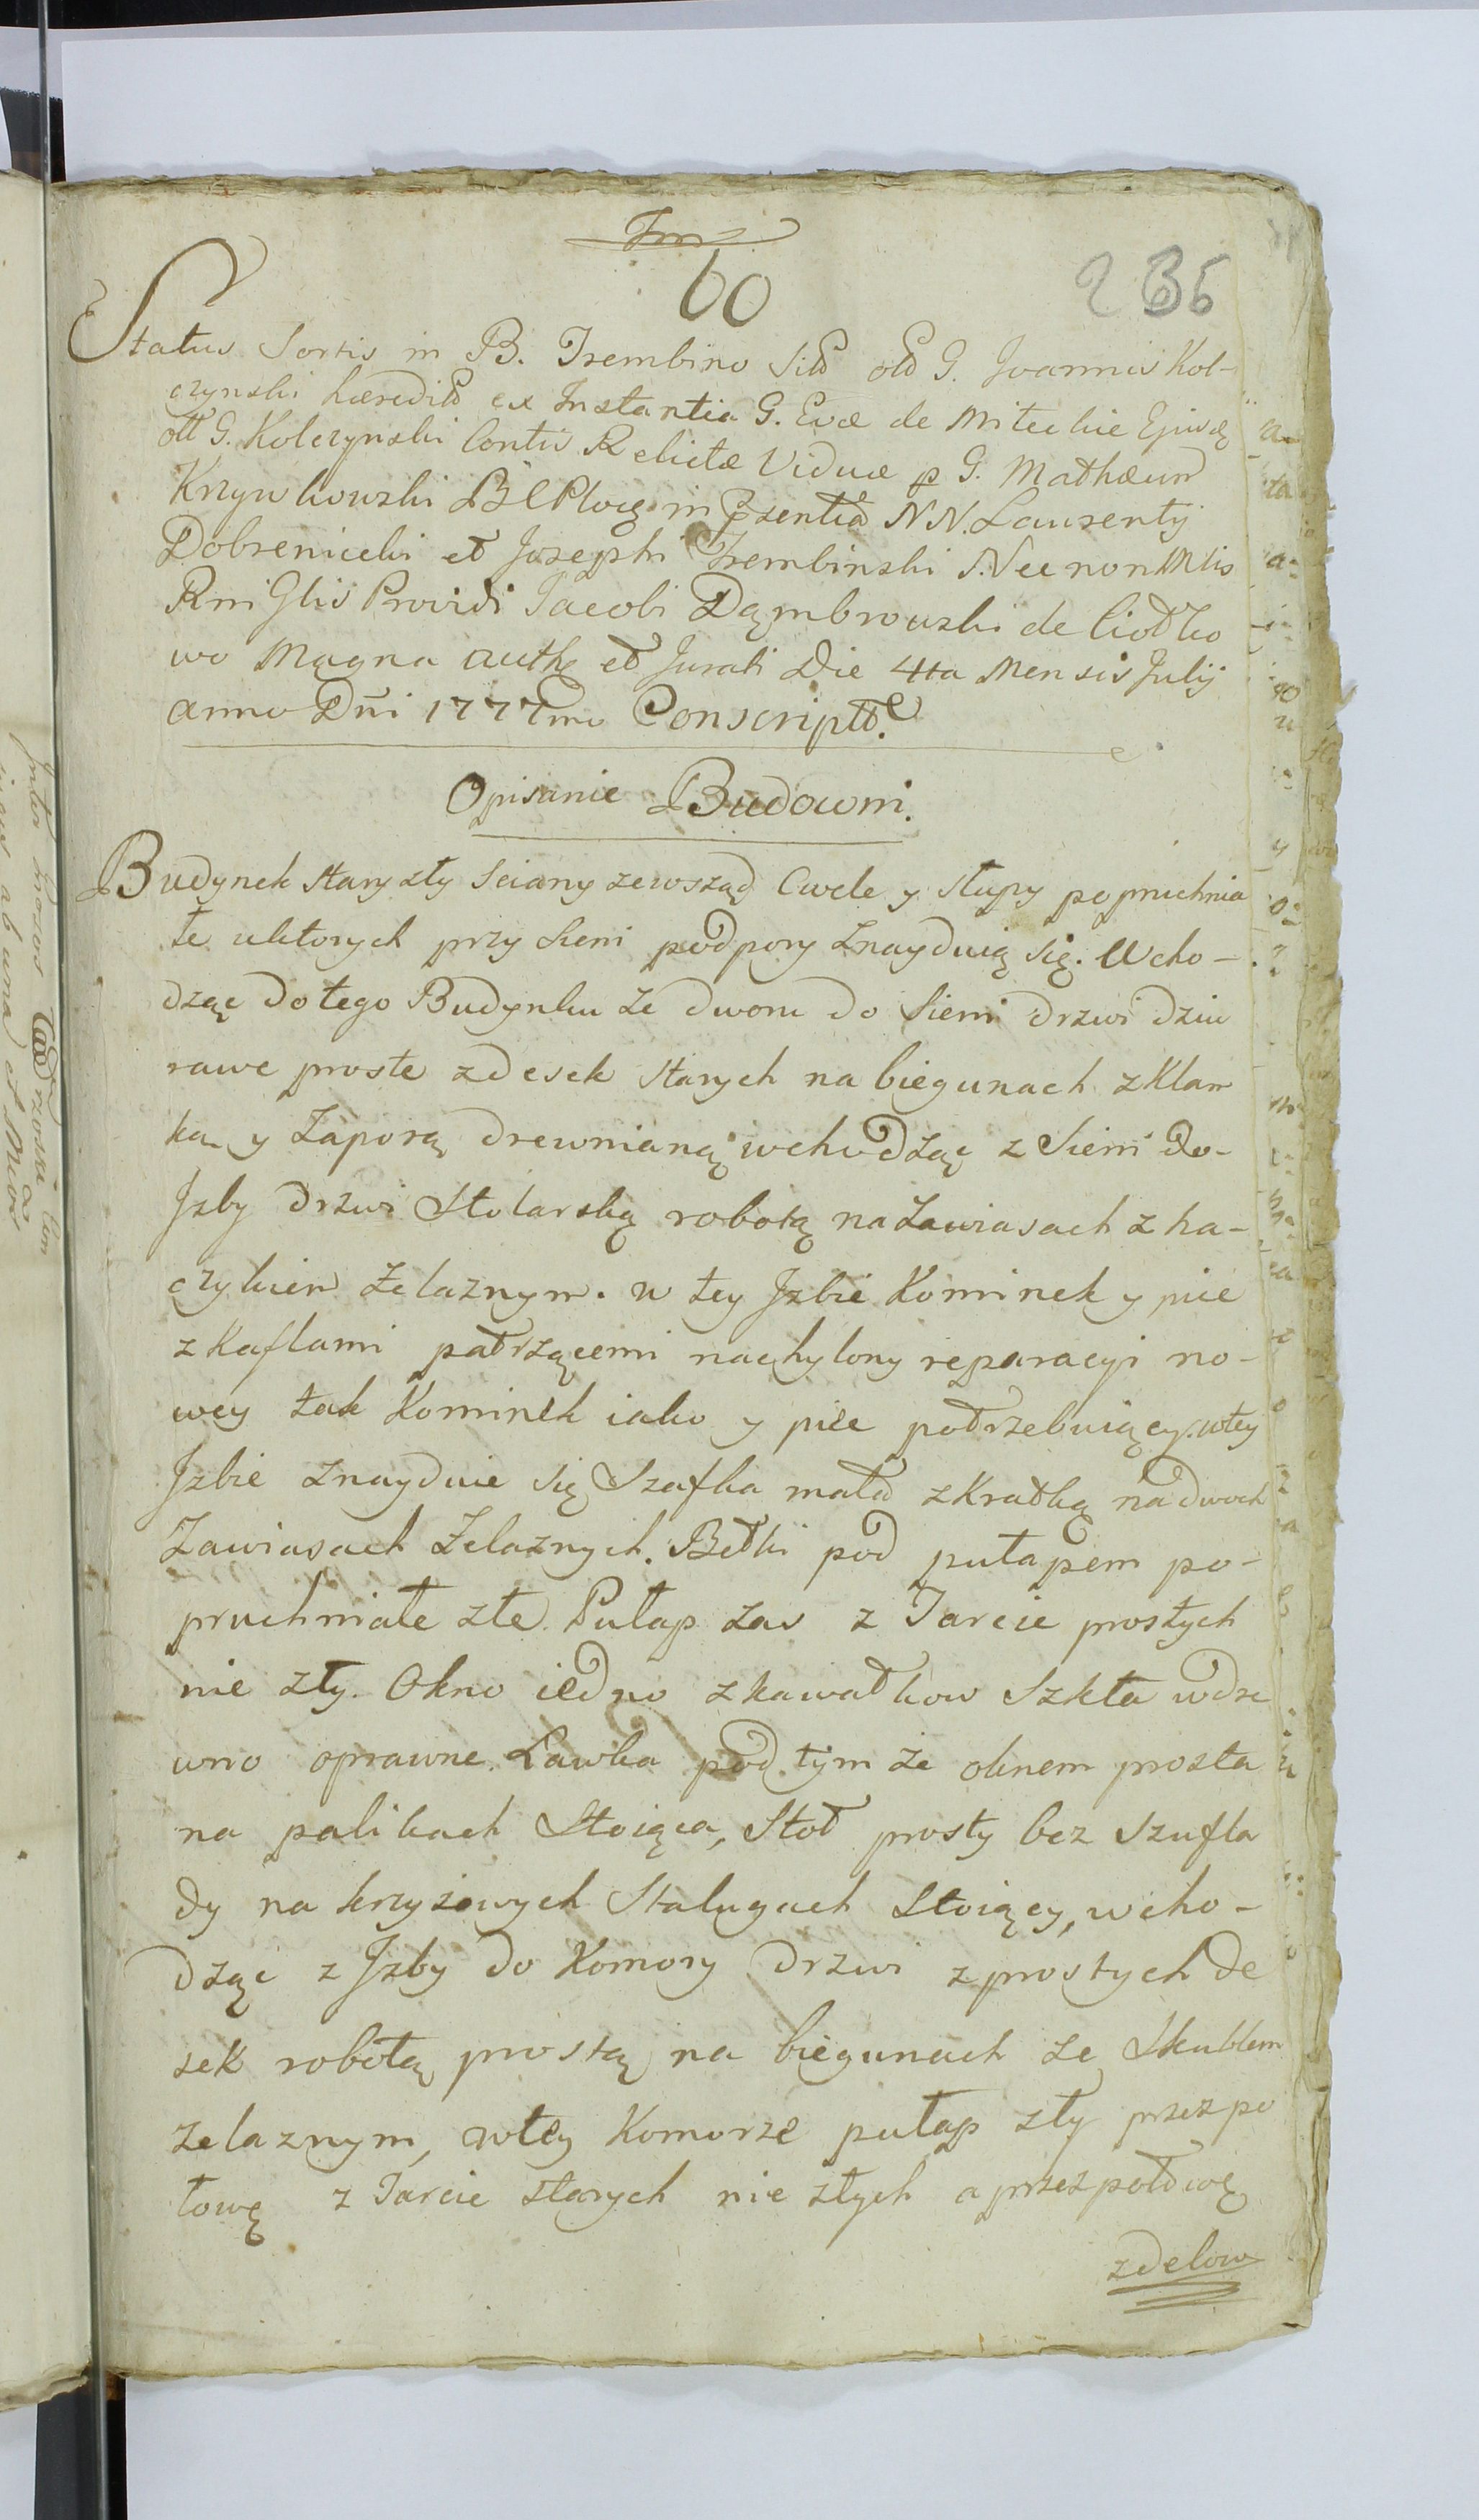 60
236
Status Sortis in B. Trembino Sitt olt G. Joannis Kol-
czynski hæredit ex Instantia G. Evæ de Miteckie Ejusdę
olt G. Kolczynski Contis Relictæ Viduæ p G. Mathæum
Krzywkowski in Pzentia NN. Laurentÿ
Dobrenicki et Josephi Trembinski S. Nec non Mlis
Rni Glis Providi Jacobi Dąmbrowski de Ciotko
wo Magna auth et Jurati Die 4ta Mensis Julij
anno Dñi 1777mo Conscriptt.
Opisanie Budowni.
Budynek stary zły Sciany zewsząd Cwele y słupy popruchnia
łe uktorych przy Sieni podpory znayduią się. Wcho-
dząc do tego Budynku ze dworu do Sieni drzwi dziu
rawe proste zdesek starych na biegunach zklam
ką y zaporą drewnianą wchodząc z Sieni do-
Jzby drzwi Stolarską robotą na zawiasach z ha-
czykiem żelaznym. w tey Jzbie Kominek y piec
z kaflami patrzącemi nachylony reparacyi no-
wey tak Kominek iako y piec potrzebuiący. wtey
Jzbie znayduie się Szafka mała zkratką na dwoch
Zawiasach Żelaznych. Bełki pod pułapem po-
pruchniałe złe. Pułap zas z Tarcic prostych
nie zły. Okno iedno z kawałkow Szkła wdrze
wno oprawne. Ławka pod tym że oknem prosta
na palikach Stoiąca, Stoł prosty bez szufla
dy na krzyżowych Stalugach Stoiący, wcho-
dząc z Jzby do Komory drzwi zprostych de
sek robotą prostą na biegunach ze Skublem
żelaznym, wtey Komorze pułap zły przez po
łowę z Tarcic starych nie złych a przez połowę
zdelow